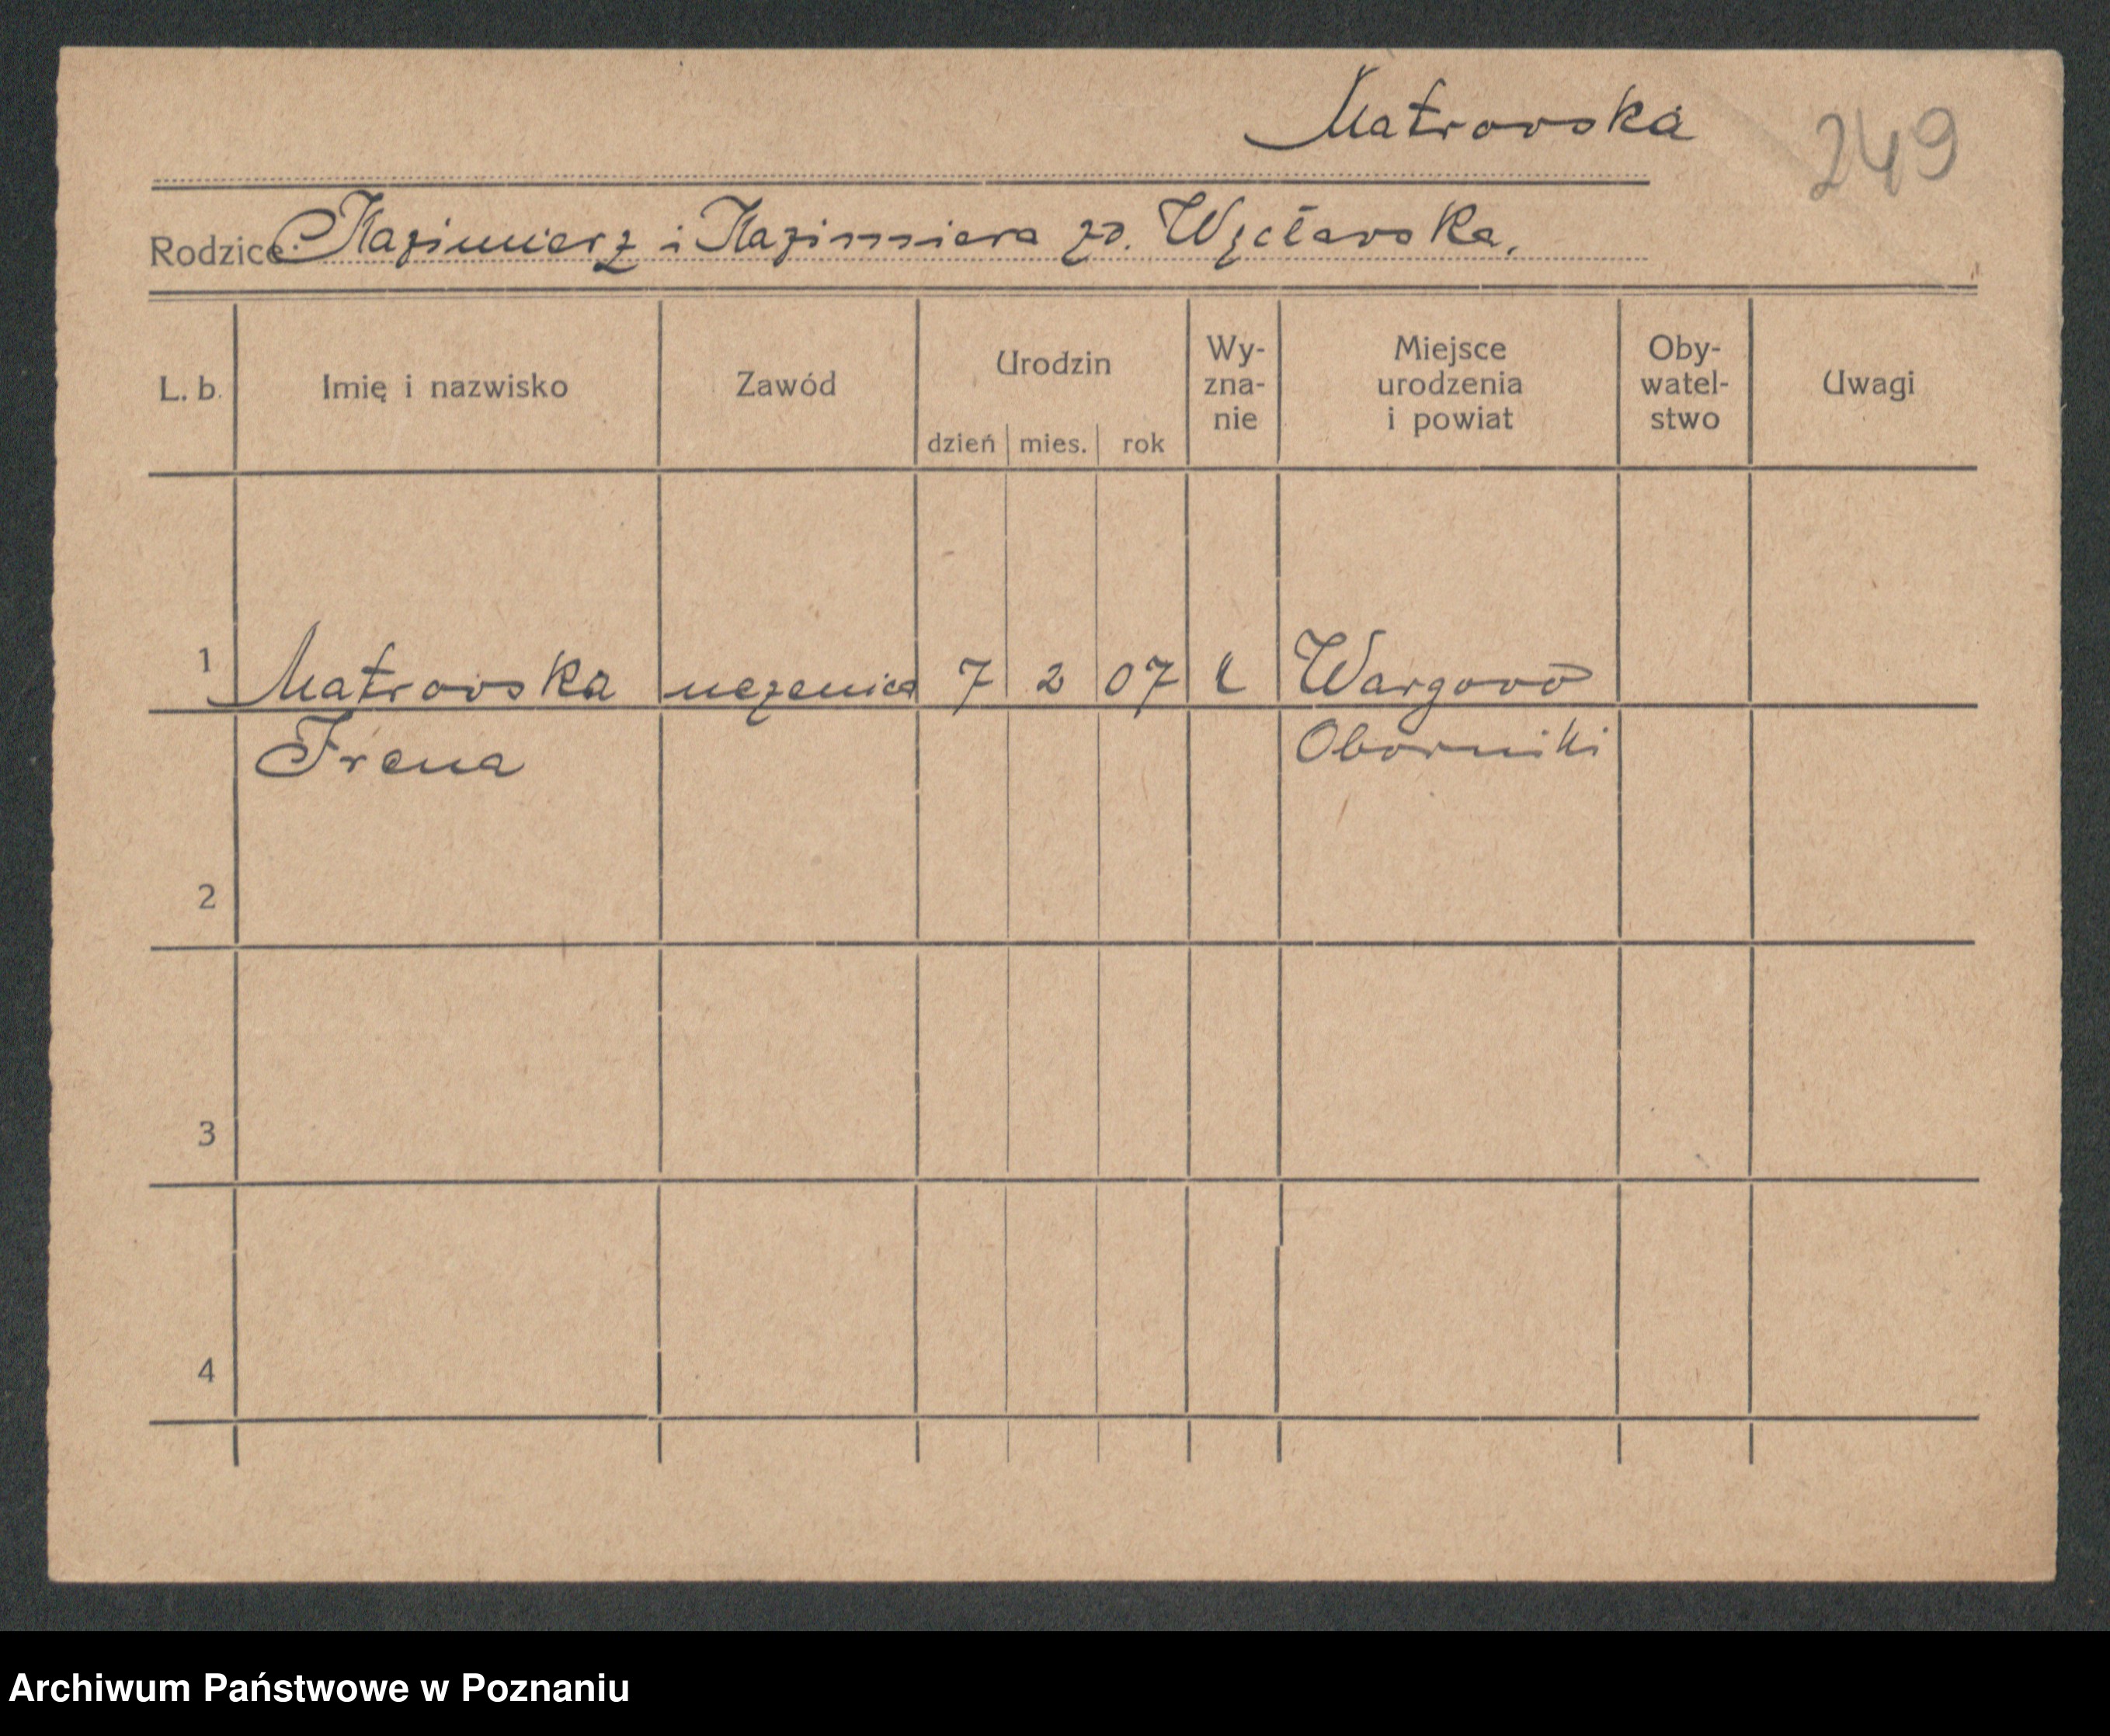 Matrowska
249
Rodzice: Kazimierz i Kazimiera zd. Węcławska.
L. b. Imię i nazwisko Zawód Urodzin dzień mies. rok Wy- zna- nie Miejsce urodzenia i powiat Oby- watel- stwo Uwagi
1 Matrowska uczenica 7 2 07 k Wargowo
Irena Oborniki
2
3
4
Archiwum Państwowe w Poznaniu